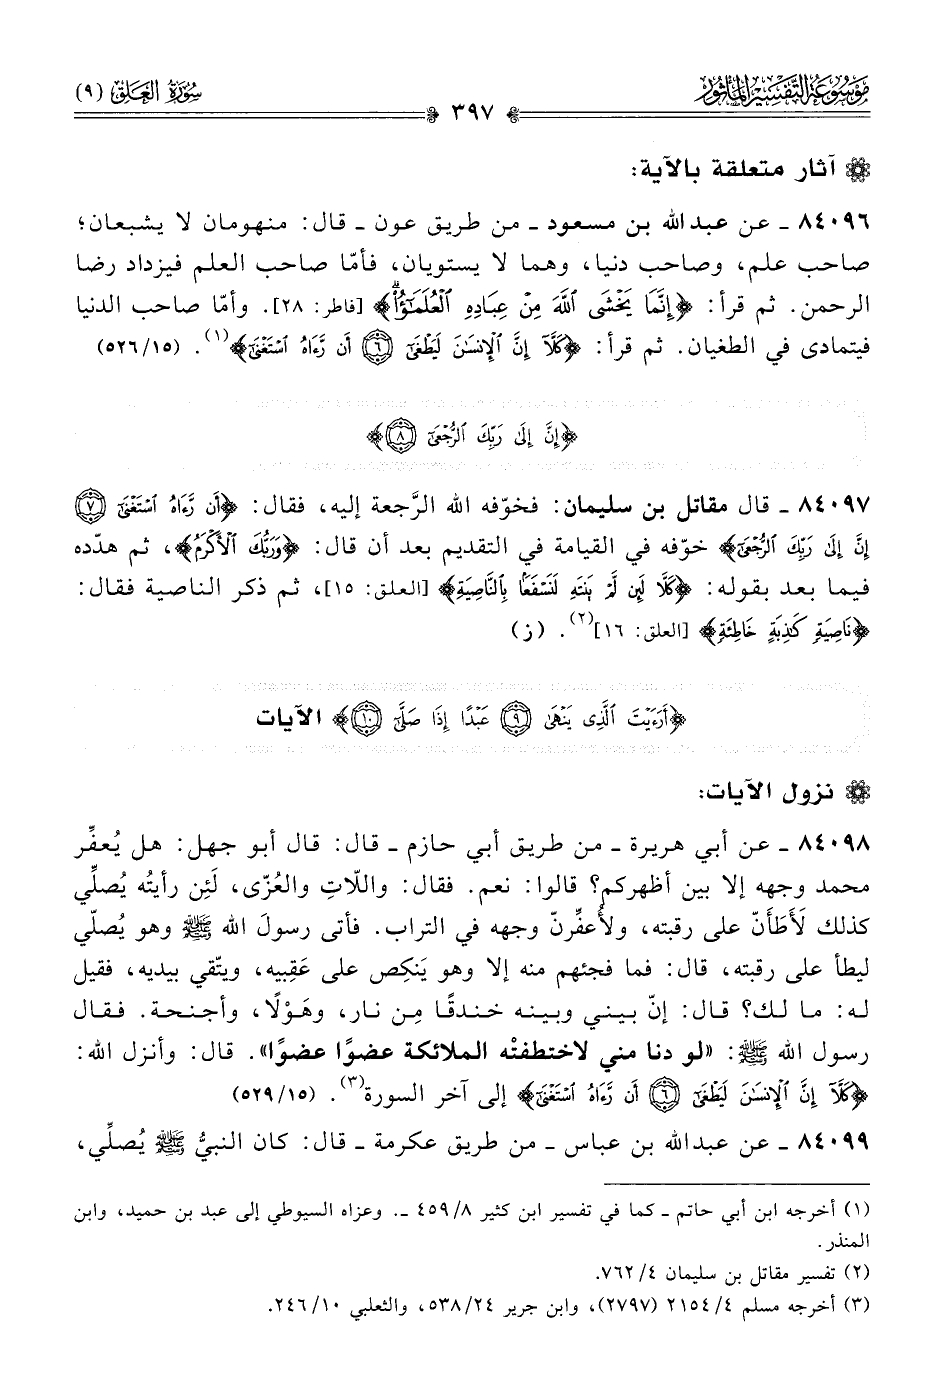 مَوْسُوعَة التَّفْسِيْر المَأثُور
سُورَةُ العَلَق (٩)
٣٩٧
آثار متعلقة بالآية:
٨٤٠٩٦ ـ عن عبد الله بن مسعود ـ من طريق عون ـ قال: منهومان لا يشبعان؛
صاحب علم، وصاحب دنيا، وهما لا يستويان، فأمّا صاحب العلم فيزداد رضا
الرحمن. ثم قرأ: ﴿إِنَّمَا يَخْشَى ٱللَّهَ مِنْ عِبَادِهِ ٱلْعُلَمَـٰٓؤُا۟ۗ﴾ [فاطر: ٢٨]. وأمّا صاحب الدنيا
فيتمادى في الطغيان. ثم قرأ: ﴿كَلَّآ إِنَّ ٱلْإِنسَـٰنَ لَيَطْغَىٰٓ ٦ أَن رَّءَاهُ ٱسْتَغْنَىٰٓ﴾(١). (١٥/٥٢٦)
﴿إِنَّ إِلَىٰ رَبِّكَ ٱلرُّجْعَىٰٓ ٨﴾
٨٤٠٩٧ ـ قال مقاتل بن سليمان: فخوّفه الله الرَّجعة إليه، فقال: ﴿أَن رَّءَاهُ ٱسْتَغْنَىٰٓ ٧
إِنَّ إِلَىٰ رَبِّكَ ٱلرُّجْعَىٰٓ﴾ خوّفه في القيامة في التقديم بعد أن قال: ﴿وَرَبُّكَ ٱلْأَكْرَمُ﴾، ثم هدّده
فيما بعد بقوله: ﴿كَلَّا لَئِن لَّمْ يَنتَهِ لَنَسْفَعًۢا بِٱلنَّاصِيَةِ﴾ [العلق: ١٥]، ثم ذكر الناصية فقال:
﴿نَاصِيَةٍ كَـٰذِبَةٍ خَاطِئَةٍ﴾ [العلق: ١٦](٢). (ز)
﴿أَرَءَيْتَ ٱلَّذِى يَنْهَىٰ ٩ عَبْدًا إِذَا صَلَّىٰٓ ١٠﴾ الآيات
نزول الآيات:
٨٤٠٩٨ ـ عن أبي هريرة ـ من طريق أبي حازم ـ قال: قال أبو جهل: هل يُعفِّر
محمد وجهه إلا بين أظهركم؟ قالوا: نعم. فقال: واللّاتِ والعُزّى، لَئِن رأيتُه يُصلِّي
كذلك لَأَطَأَنّ على رقبته، ولأُعفِّرنّ وجهه في التراب. فأتى رسولَ الله ﷺ وهو يُصلّي
ليطأ على رقبته، قال: فما فجئهم منه إلا وهو يَنكِص على عَقِبيه، ويتّقي بيديه، فقيل
له: ما لك؟ قال: إنّ بيني وبينه خندقًا مِن نار، وهَوْلًا، وأجنحة. فقال
رسول الله ﷺ: «لو دنا مني لاختطفتْه الملائكة عضوًا عضوًا». قال: وأنزل الله:
﴿كَلَّآ إِنَّ ٱلْإِنسَـٰنَ لَيَطْغَىٰٓ ٦ أَن رَّءَاهُ ٱسْتَغْنَىٰٓ﴾ إلى آخر السورة(٣). (١٥/٥٢٩)
٨٤٠٩٩ ـ عن عبد الله بن عباس ـ من طريق عكرمة ـ قال: كان النبيُّ ﷺ يُصلِّي،
(١) أخرجه ابن أبي حاتم ـ كما في تفسير ابن كثير ٨/٤٥٩ ـ. وعزاه السيوطي إلى عبد بن حميد، وابن
المنذر.
(٢) تفسير مقاتل بن سليمان ٤/٧٦٢.
(٣) أخرجه مسلم ٤/٢١٥٤ (٢٧٩٧)، وابن جرير ٢٤/٥٣٨، والثعلبي ١٠/٢٤٦.